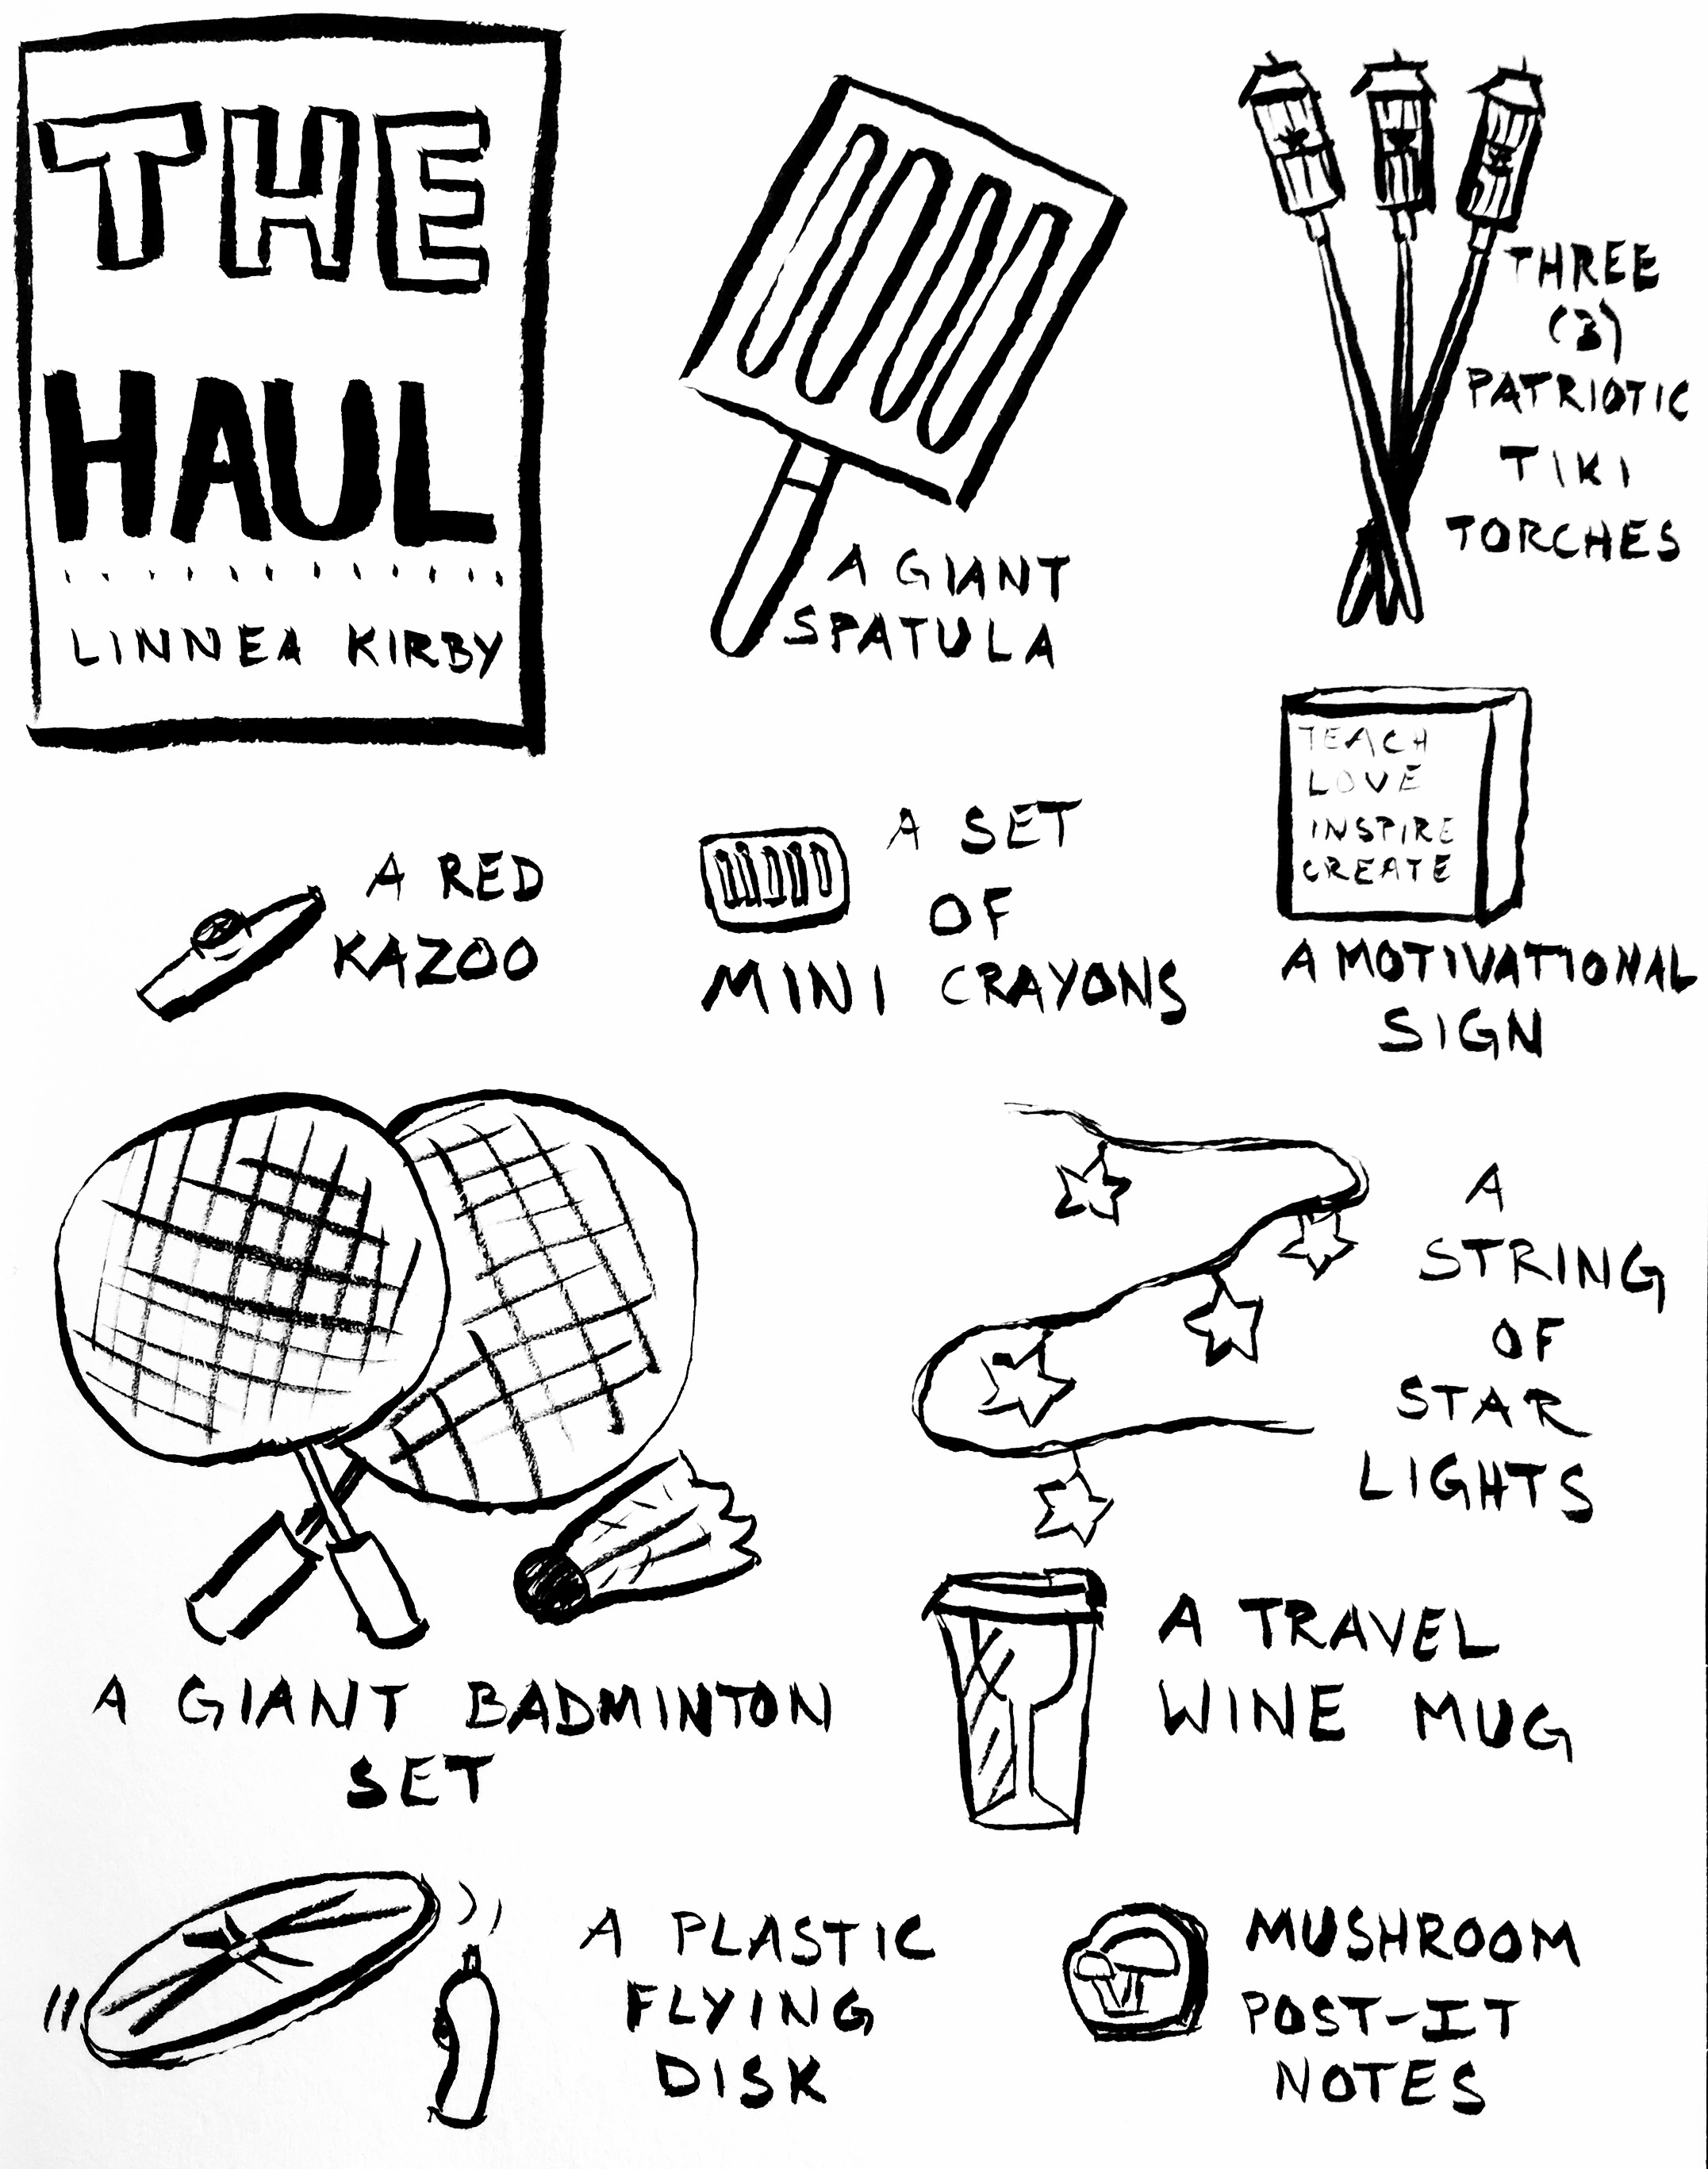 THE
HAUL
LINNEA KIRBY
A GIANT
SPATULA
THREE
(3)
PATRIOTIC
TIKI
TORCHES
A RED
KAZOO
A SET
OF
MINI CRAYONS
TEACH
LOVE
INSPIRE
CREATE
A MOTIVATIONAL
SIGN
A GIANT BADMINTON
SET
A
STRING
OF
STAR
LIGHTS
A TRAVEL
WINE MUG
A PLASTIC
FLYING
DISK
MUSHROOM
POST-IT
NOTES